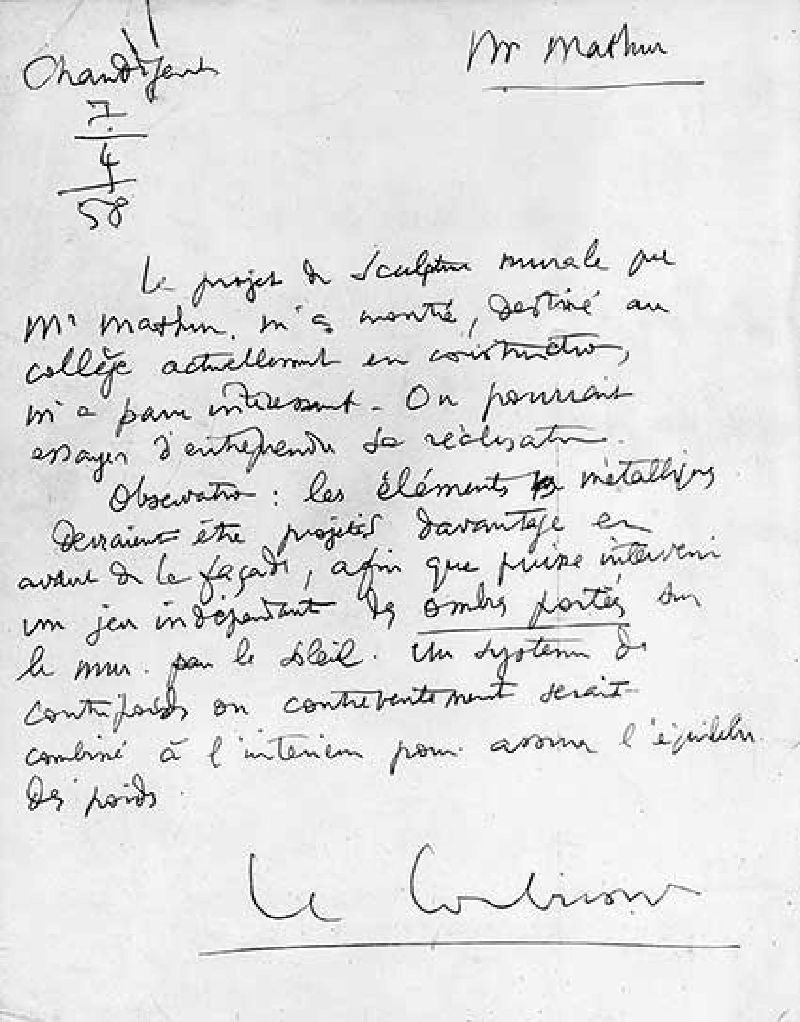 Chandigarh
Mr Mathur
7
4
58
Le projet de sculpture murale que
Mr Mathur, m'a montré, destiné au
collège actuellement en construction,
m'a paru intéressant - On pourrait
essayer d'entreprendre sa réalisation.
Observation : les éléments métalliques
devraient être projetés davantage en
avant de la façade, afin que puisse intervenir
un jeu indépendant des ombres portées sur
le mur. par le soleil. Un système de
contrepoids ou contreventement serait
combiné à l'intérieur pour assurer l'équilibre
des poids.
Le Corbusier